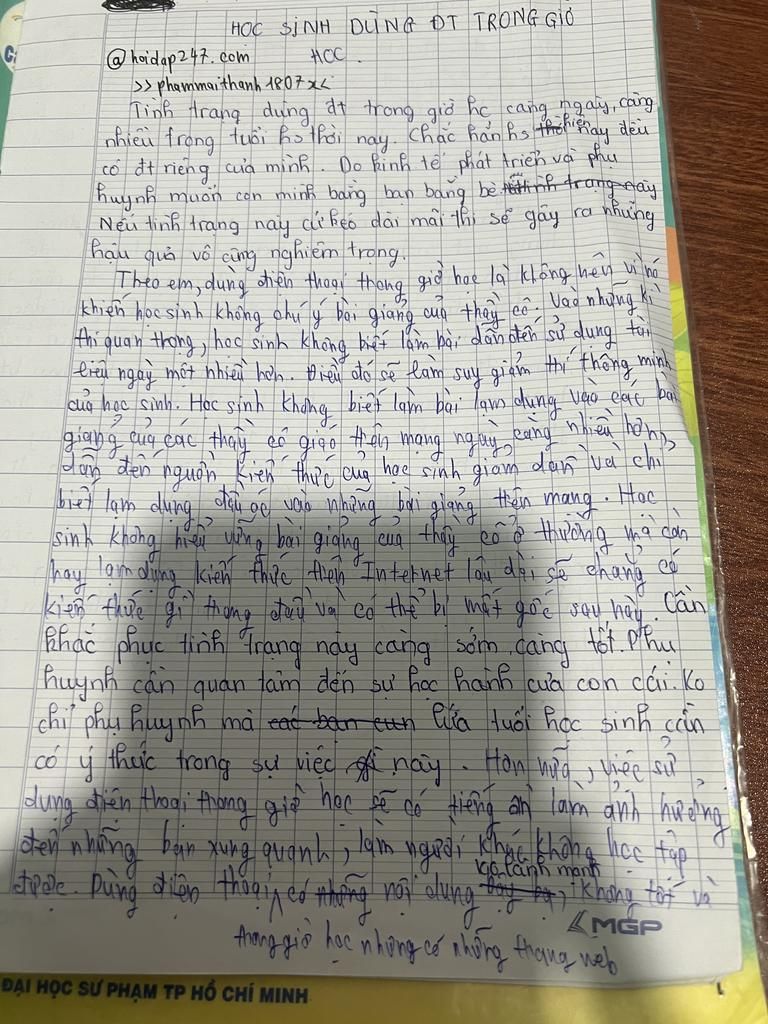 HỌC SINH DÙNG ĐT TRONG GIỜ
@hoidap247.com HỌC.
>> phammaithanh1807x<
Tình trạng dùng đt trong giờ hc càng ngày càng
nhiều trong tuổi hs thời nay. Chắc hẳn hs hiện nay đều
có đt riêng của mình. Do kinh tế phát triển và phụ
huynh muốn con mình bằng bạn bằng bè tình trạng này
Nếu tình trạng này cứ kéo dài mãi thì sẽ gây ra những
hậu quả vô cùng nghiêm trọng.
Theo em, dùng điện thoại trong giờ học là không nên vì nó
khiến học sinh không chú ý bài giảng của thầy cô. Vào những kì
thi quan trọng, học sinh không biết làm bài dẫn đến sử dụng tài
liệu ngày một nhiều hơn. Điều đó sẽ làm suy giảm trí thông minh
của học sinh. Học sinh không biết làm bài lạm dụng vào các bài
giảng của các thầy cô giáo trên mạng ngày càng nhiều hơn,
dẫn đến nguồn kiến thức của học sinh giảm dần và chỉ
biết lạm dụng đầu óc vào những bài giảng trên mạng. Học
sinh không hiểu vững bài giảng của thầy cô ở trường mà còn
hay lạm dụng kiến thức trên Internet lâu dài sẽ chẳng có
kiến thức gì trong đầu và có thể bị mất gốc sau này. Cần
khắc phục tình trạng này càng sớm càng tốt. Phụ
huynh cần quan tâm đến sự học hành của con cái. Ko
chỉ phụ huynh mà các bạn cũn lứa tuổi học sinh cần
có ý thức trong sự việc gì này. Hơn nữa, việc sử
dụng điện thoại trong giờ học sẽ có tiếng ồn làm ảnh hưởng
đến những bạn xung quanh, làm người khác không học tập
được. Dùng điện thoại, có những nội dung ko lành mạnh, không tốt và
MGP
trong giờ học nhưng có những trang web
ĐẠI HỌC SƯ PHẠM TP HỒ CHÍ MINH